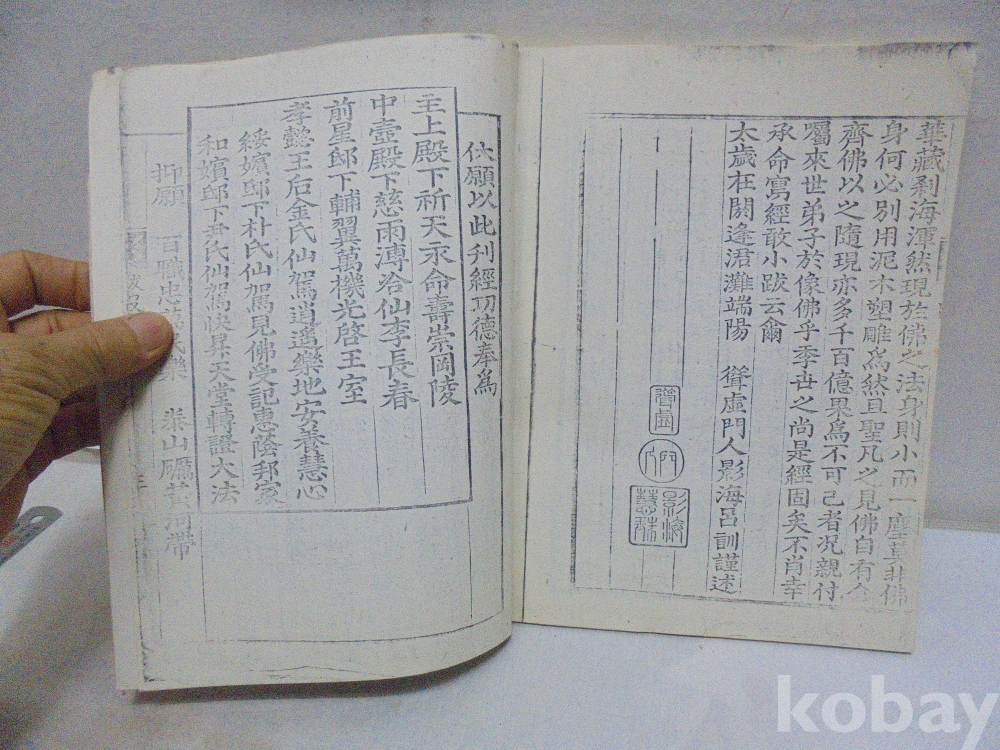 華藏刹海渾然現於佛之法身則小而一塵真非佛
身何必別用泥木塑雕爲然且聖凡之見佛自有
齊佛以之隨現亦多千百億果爲不可已者况親付
囑來世弟子於像佛乎季世之尚是經固矣不肖幸
承命寫經敢小跋云爾
太歲在閼逢涒灘端陽 聳虛門人影海呂訓謹述
門人
影海
伏願以此刊經功德奉爲
主上殿下祈天永命壽崇岡陵
中壼殿下慈雨溥洽仙李長春
前星邸下輔翼萬機光啓王室
孝懿王后金氏仙駕逍遙樂地安養慧心
綏嬪邸下朴氏仙駕見佛受記惠蔭邦家
和嬪邸下尹氏仙駕快昇天堂轉證大法
抑願 百職忠 民樂 泰山礪黃河帶
kobay